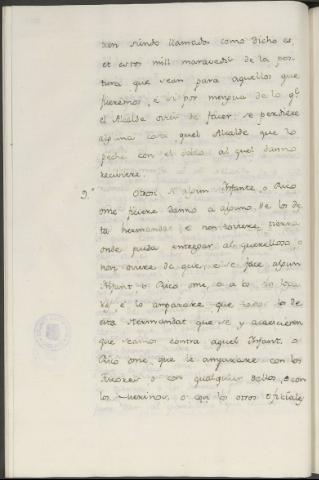 sen siendo llamados como dicho es,
et estos mill maravedis de la pos-
tura que sean para aquellos que
fueremos, e si por mengua de lo q.e
el Alcalde oviere de facer se perdiere
alguna cosa, quel Alcalde que lo
peche con el doblo al quel danno
reciviere.
9.º Otrosi si algun Infante, o Rico
ome ficiere danno a alguno de los des-
ta hermandat e non toviere tierra
onde pueda entregar al querelloso, o
non oviere de que, e se face algun
Infant, o Rico ome, o
e lo amparare, que todos los de
esta Hermandat que se y acaecieren
que seamos contra aquel Infant, o
Rico ome, que le amparare con los
o con qualquier dellos, o con
los Merinos, o con los otros oficiales